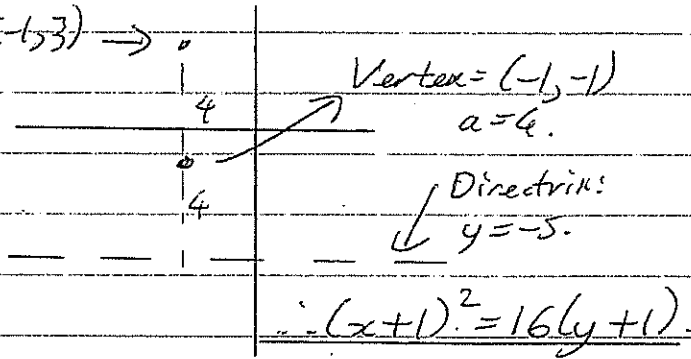 (-1,3) →
Vertex = (-1, -1)
a = 4.
4
4
Directrix:
y = -5.
∴ (x+1)² = 16(y+1).